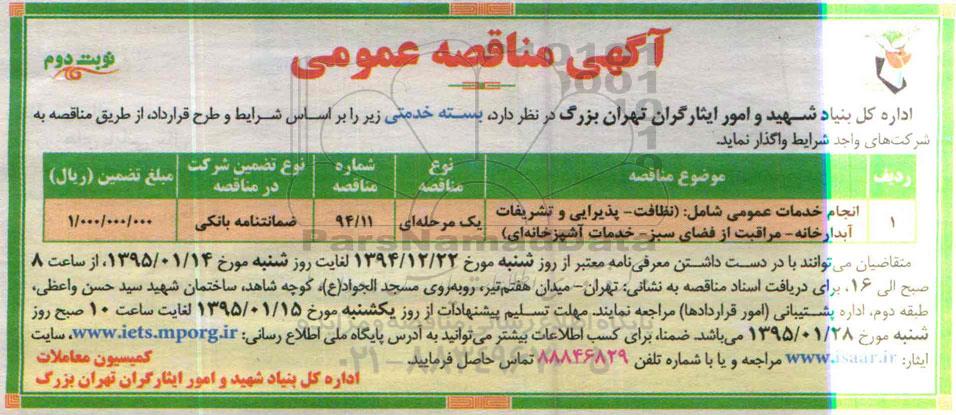 آگهی مناقصه عمومی
نوبت دوم
اداره کل بنیاد شهید و امور ایثارگران تهران بزرگ در نظر دارد، بسته خدمتی زیر را بر اساس شرایط و طرح قرارداد، از طریق مناقصه به
شرکت‌های واجد شرایط واگذار نماید.
ردیف موضوع مناقصه نوع مناقصه شماره مناقصه نوع تضمین شرکت در مناقصه مبلغ تضمین (ریال)
۱ انجام خدمات عمومی شامل: (نظافت- پذیرایی و تشریفات آبدارخانه- مراقبت از فضای سبز- خدمات آشپزخانه‌ای) یک مرحله‌ای ۹۴/۱۱ ضمانتنامه بانکی ۱/۰۰۰/۰۰۰/۰۰۰
متقاضیان می‌توانند با در دست داشتن معرفی‌نامه معتبر از روز شنبه مورخ ۱۳۹۴/۱۲/۲۲ لغایت روز شنبه مورخ ۱۳۹۵/۰۱/۱۴، از ساعت ۸
صبح الی ۱۶، برای دریافت اسناد مناقصه به نشانی: تهران- میدان هفتم‌تیر، روبه‌روی مسجد الجواد(ع)، کوچه شاهد، ساختمان شهید سید حسن واعظی،
طبقه دوم، اداره پشتیبانی (امور قراردادها) مراجعه نمایند. مهلت تسلیم پیشنهادات از روز یکشنبه مورخ ۱۳۹۵/۰۱/۱۵ لغایت ساعت ۱۰ صبح روز
شنبه مورخ ۱۳۹۵/۰۱/۲۸ می‌باشد. ضمنا، برای کسب اطلاعات بیشتر می‌توانید به آدرس پایگاه ملی اطلاع رسانی: www.iets.mporg.ir، سایت
ایثار: www.isaar.ir مراجعه و یا با شماره تلفن ۸۸۸۴۶۸۲۹ تماس حاصل فرمایید.
کمیسیون معاملات
اداره کل بنیاد شهید و امور ایثارگران تهران بزرگ
ParsNamadData